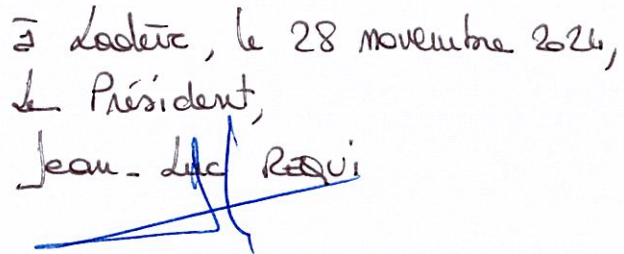 à Lodève, le 28 novembre 2024,
Le Président,
Jean-Luc REQUI